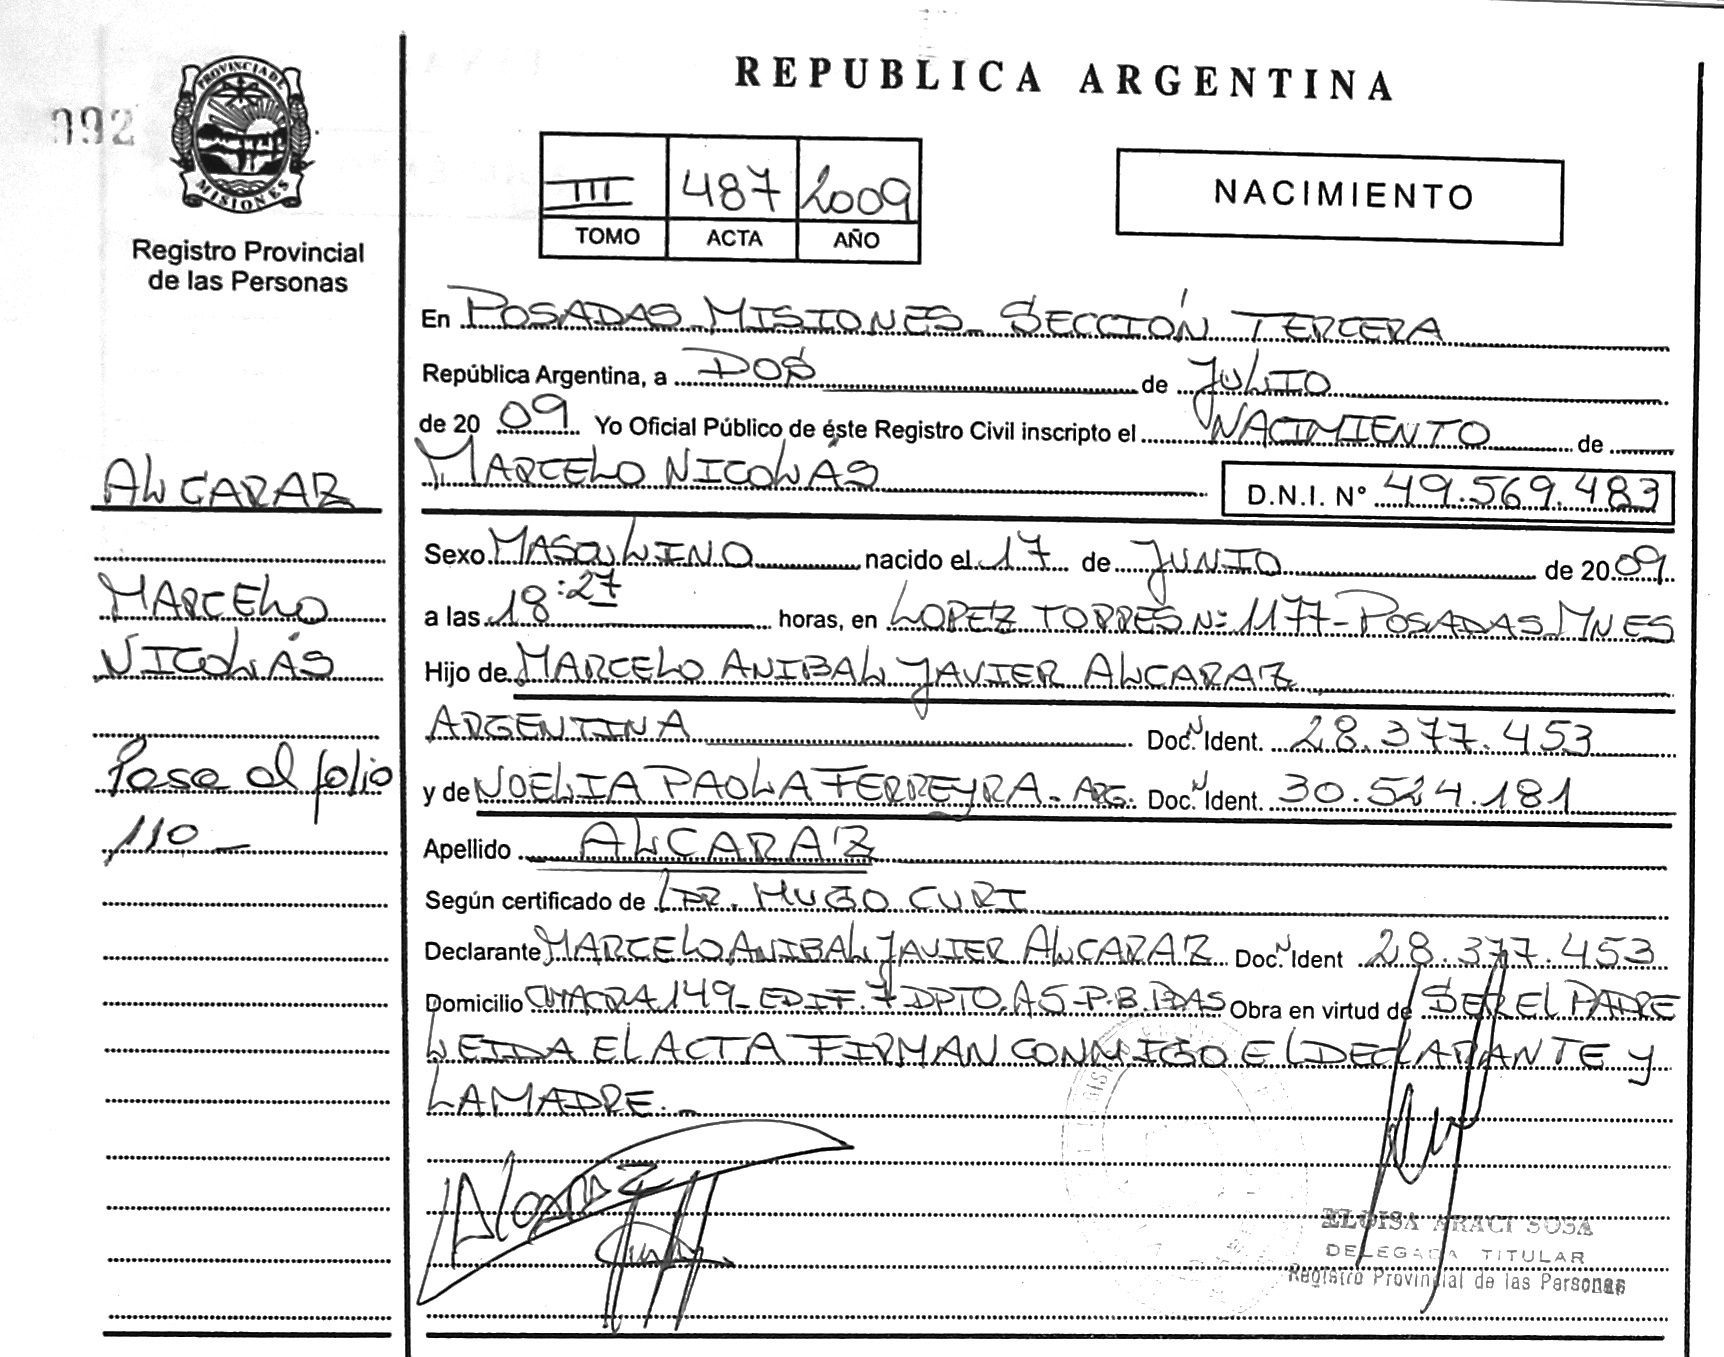 992
PROVINCIA DE
MISIONES
Registro Provincial
de las Personas
ALCARAZ
MARCELO
NICOLÁS
Pase al folio
110_
REPUBLICA ARGENTINA
III 487 2009
TOMO ACTA AÑO
NACIMIENTO
En POSADAS MISIONES_ SECCIÓN TERCERA
República Argentina, a DOS de JULIO
de 20 09 Yo Oficial Público de éste Registro Civil inscripto el NACIMIENTO de
MARCELO NICOLÁS D.N.I. Nº 49.569.483
Sexo MASCULINO nacido el 17 de JUNIO de 20 09
a las 18:27 horas, en LOPEZ TORRES Nº 1177-POSADAS MNES
Hijo de MARCELO ANIBAL JAVIER ALCARAZ
ARGENTINA Doc. N Ident. 28.377.453
y de NOELIA PAOLA FERREYRA. ARG. Doc. N Ident. 30.524.181
Apellido ALCARAZ
Según certificado de DR. HUGO CURI
Declarante MARCELO ANIBAL JAVIER ALCARAZ Doc. N Ident 28.377.453
Domicilio CHACRA 149_ EDIF. 7 DPTO. A5-P.B. PDAS Obra en virtud de SER EL PADRE
LEIDA EL ACTA FIRMAN CONMIGO EL DECLARANTE Y
LA MADRE._
Alcaraz
ELOISA ARACI SOSA
DELEGADA TITULAR
Registro Provincial de las Personas